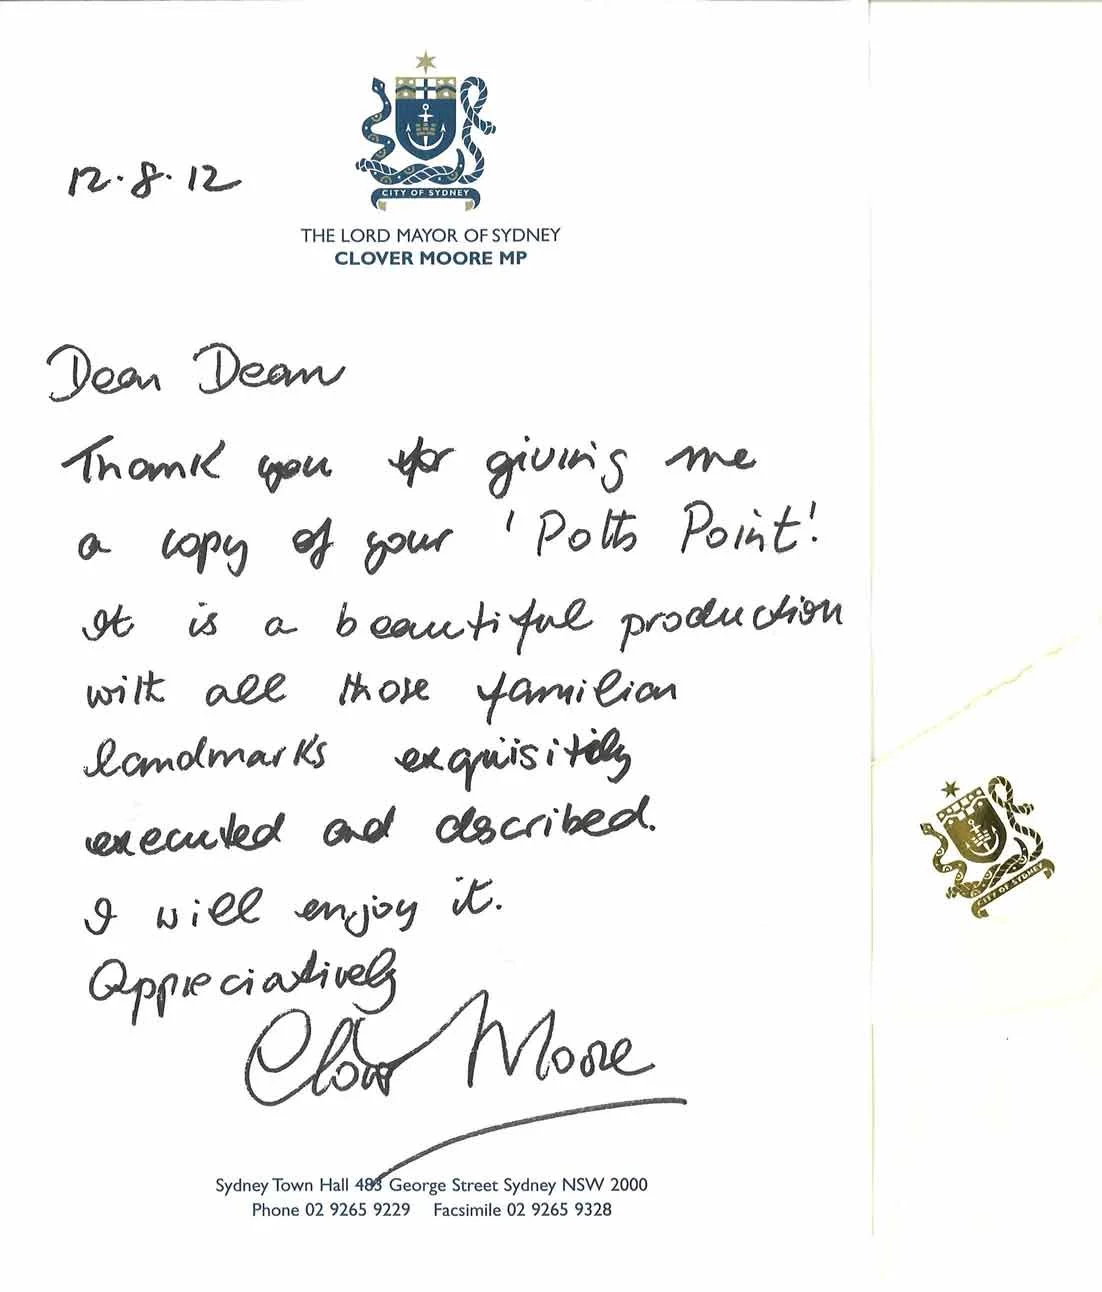 12.8.12
CITY OF SYDNEY
THE LORD MAYOR OF SYDNEY
CLOVER MOORE MP
Dear Dean
Thank you for giving me
a copy of your 'Potts Point'.
It is a beautiful production
with all those familiar
landmarks exquisitily
executed and described.
I will enjoy it.
Appreciatively
Clover Moore
Sydney Town Hall 483 George Street Sydney NSW 2000
Phone 02 9265 9229 Facsimile 02 9265 9328
CITY OF SYDNEY